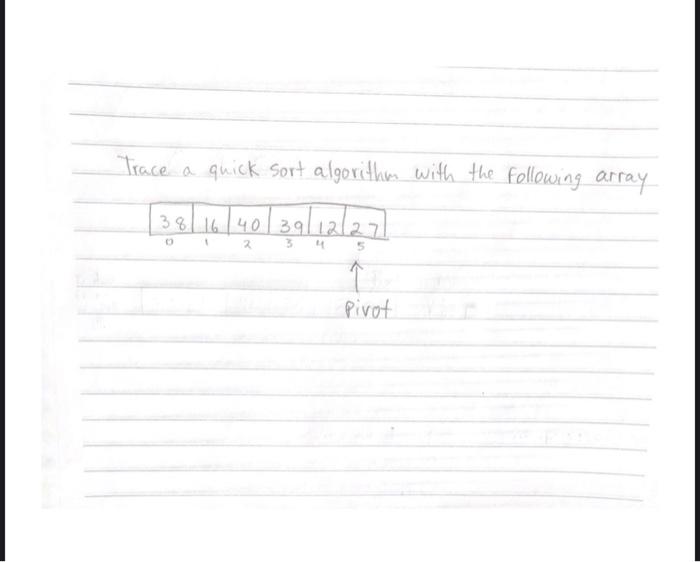 Trace a quick sort algorithm with the following array
38 16 40 39 12 27
0 1 2 3 4 5
↑
Pivot